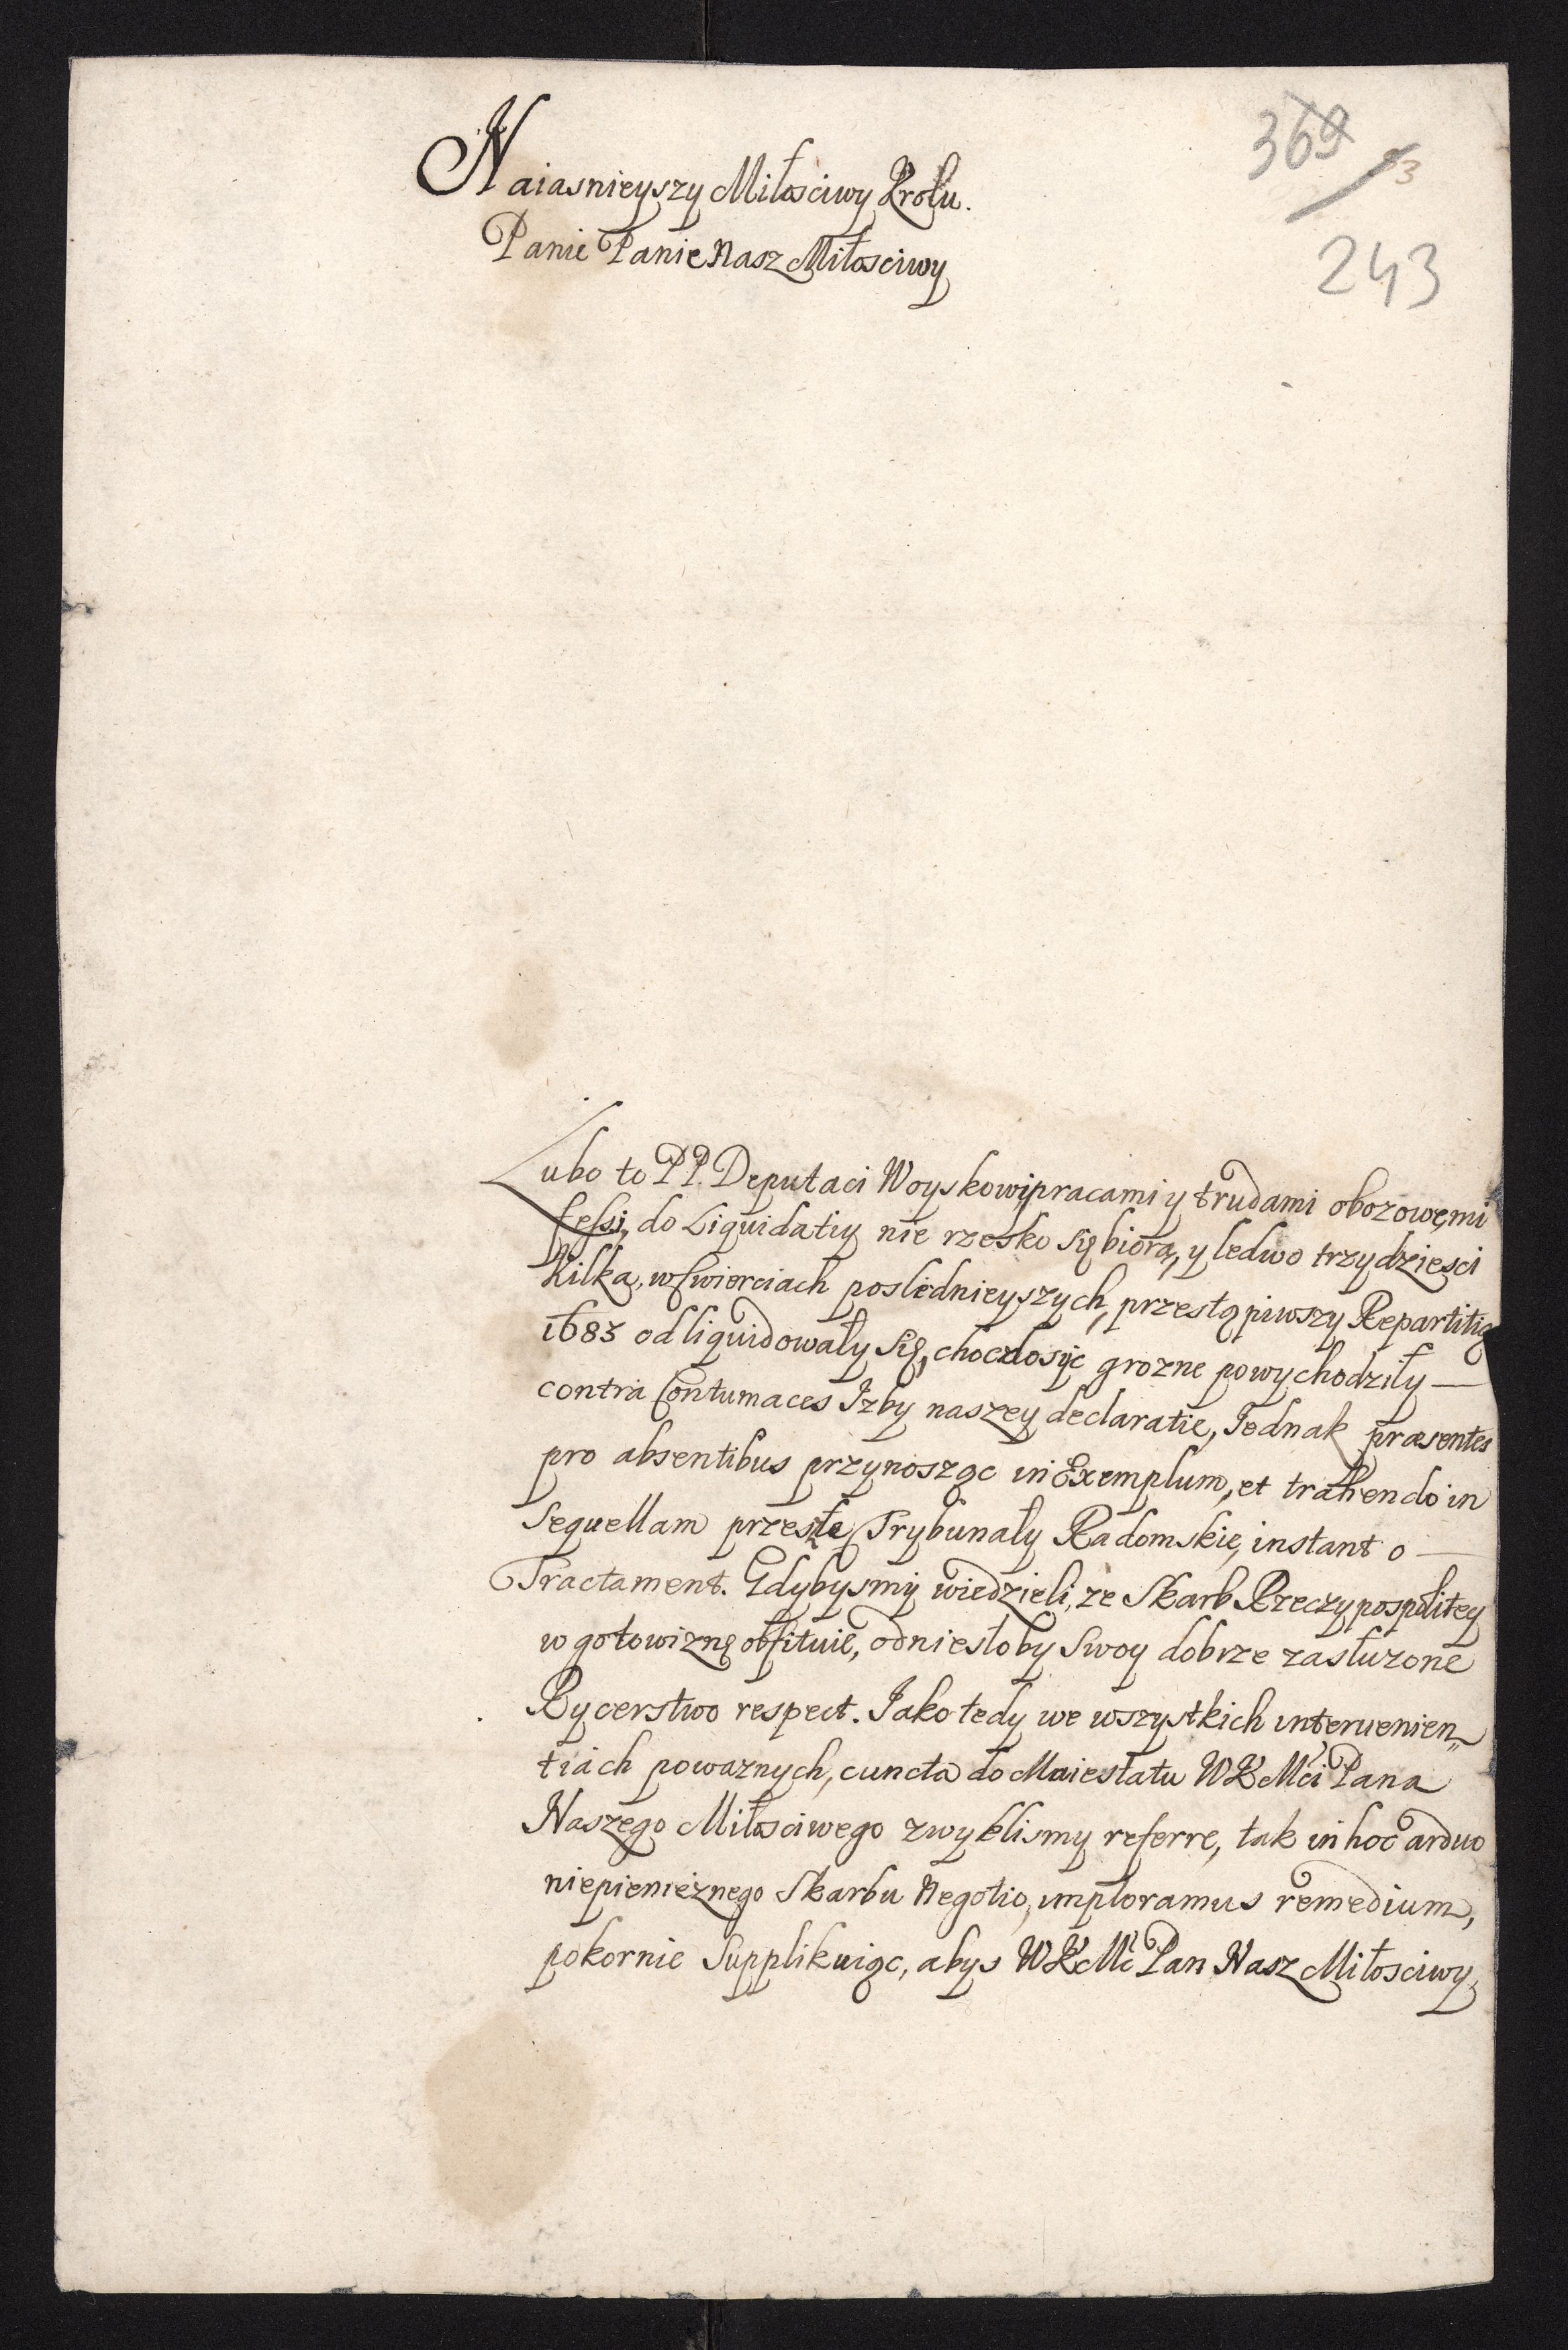 Naiasnieyszy Miłosciwy Krolu.
Panie Panie Nasz Miłosciwy
369
93
243
Lubo to PP. Deputaci Woyskowi pracami y trudami obozowęmi
fessi, do Liquidatiy nie rzesko się biorą, y ledwo trzydziesci
kilka, w swierciach poslednieyszych, przestąpiwszy Repartitią
1683 odliquidowały się, choc dosyc grozne powychodziły —
contra Contumaces Izby naszey declaratie, Iednak præsentes
pro absentibus przynosząc in Exemplum, et trahendo in
Sequellam przeszłe Trybunały Radomskie, instant o —
Tractament. Gdybysmy wiedzieli, ze Skarb Rzeczypospolitey
w gotowiznę obfituie, odniesłoby Swoy dobrze zasłuzone
Rycerstwo respect. Iako tedy we wszystkich interuenien„
tiach powaznych, cuncta do Maiestatu WKMci Pana
Naszego Miłosciwego zwyklismy referre, tak in hoc arduo
niepienieżnego Skarbu Negotio, imploramus remedium,
pokornie Supplikuiąc, abys WKMc Pan Nasz Miłosciwy,